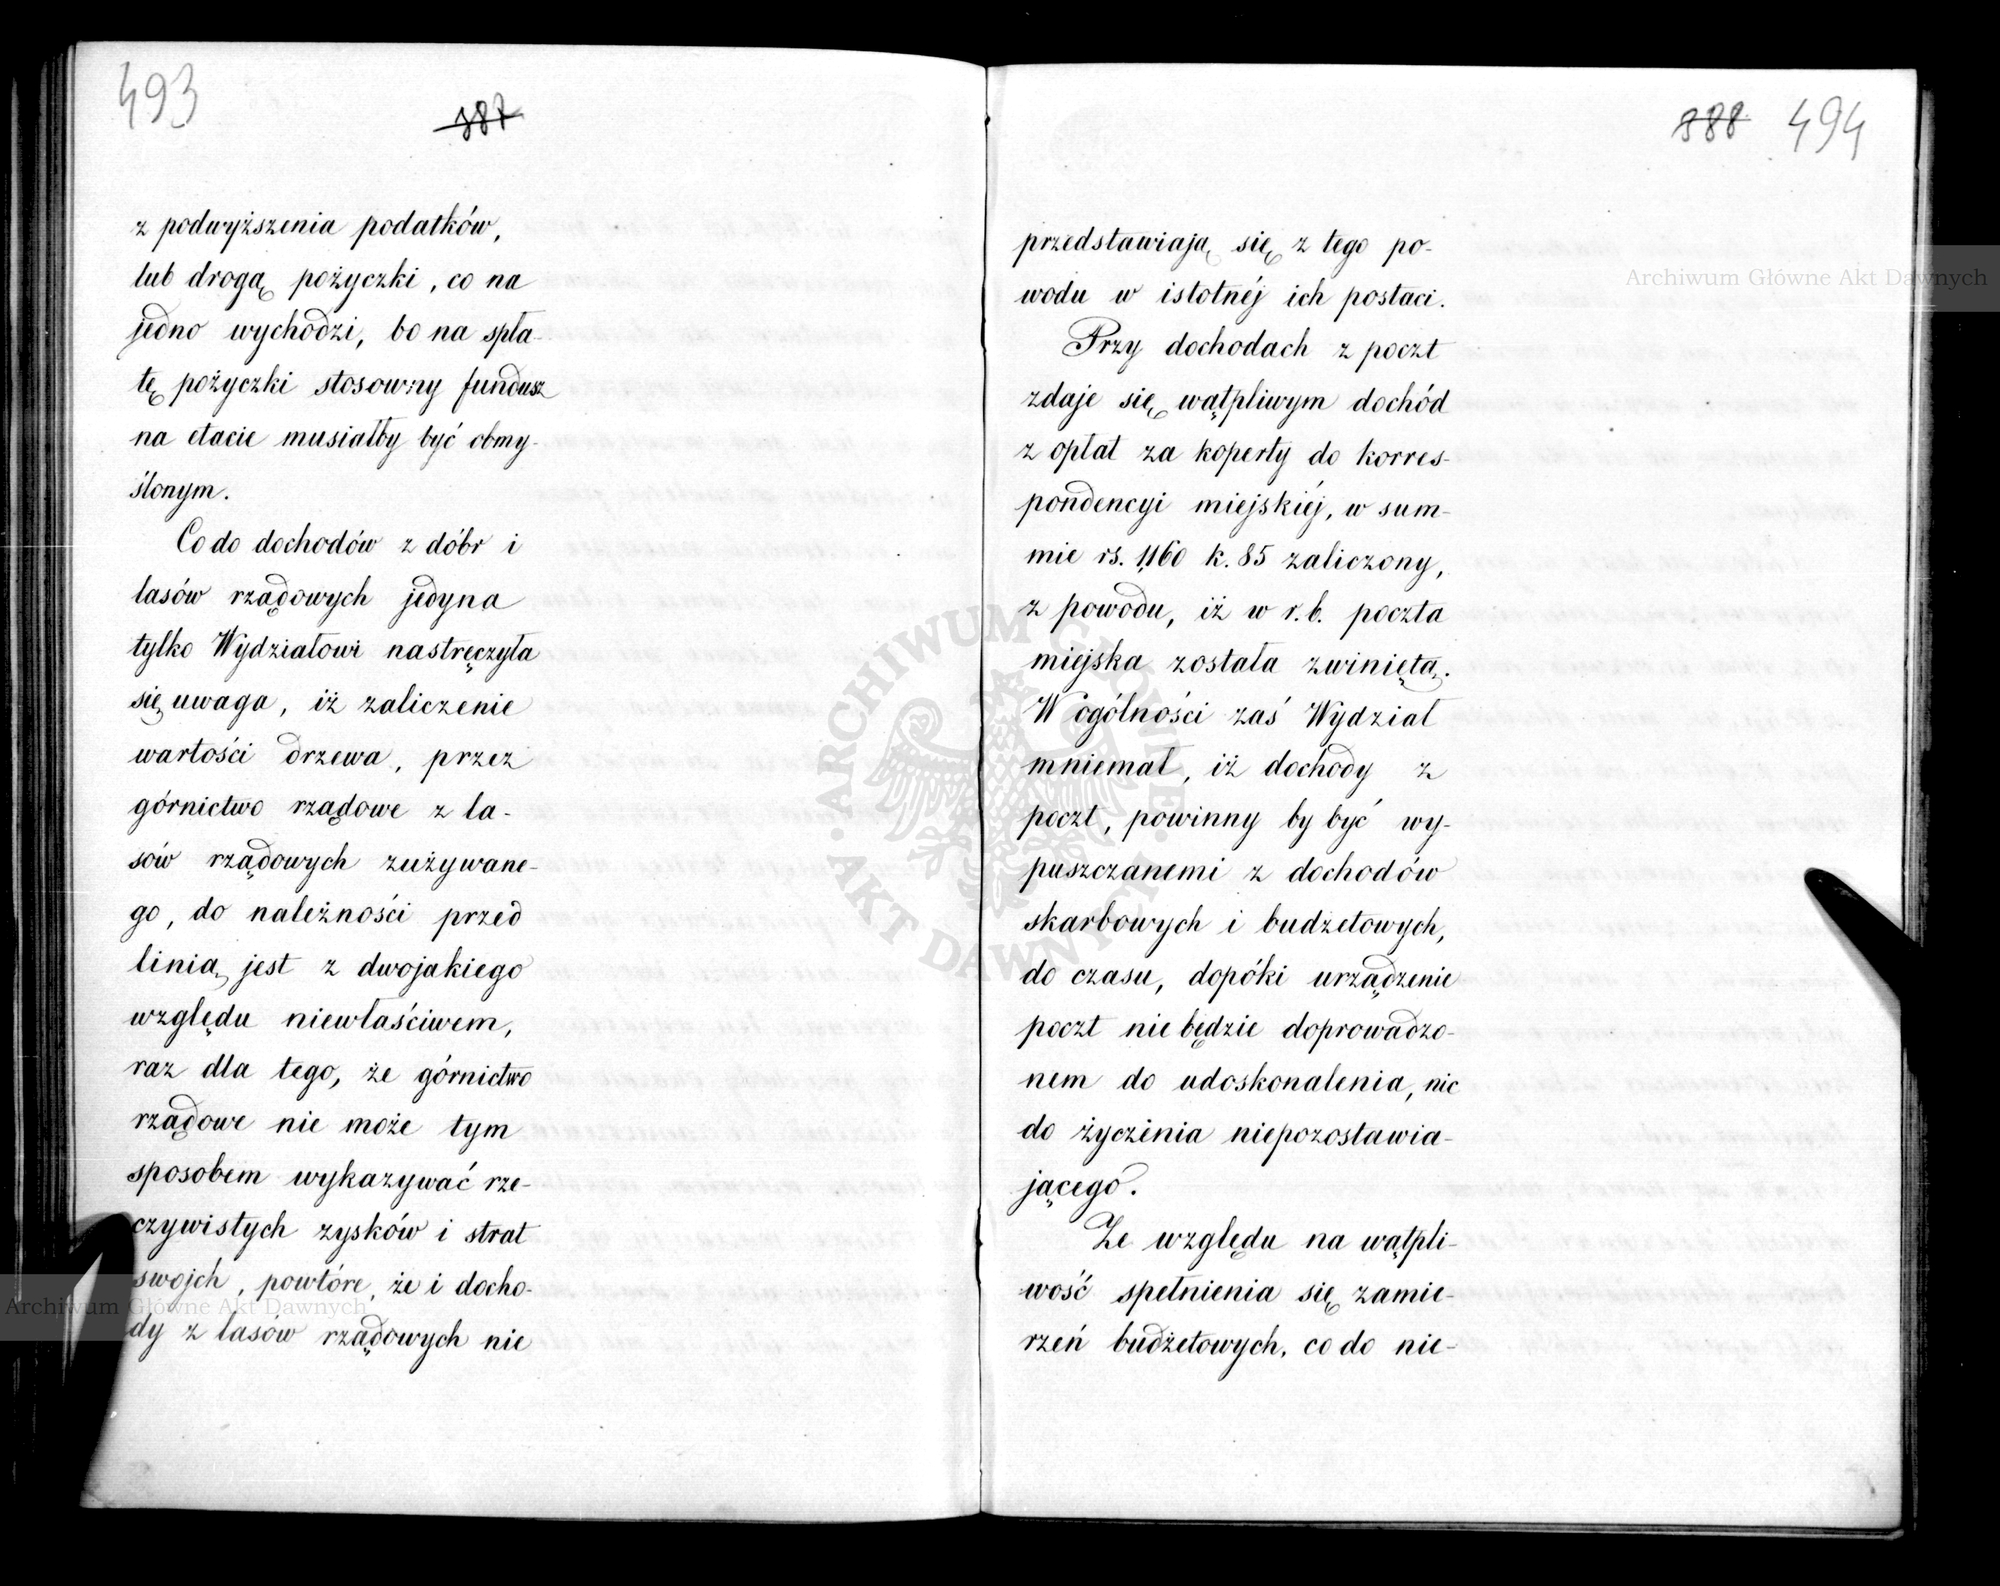 493
387
z podwyższenia podatków,
lub drogą pożyczki, co na
jedno wychodzi, bo na spła-
tę pożyczki stosowny fundusz
na etacie musiałby być obmy-
ślonym.
Co do dochodów z dóbr i
lasów rządowych jedyna
tylko Wydziałowi nastręczyła
się uwaga, iż zaliczenie
wartości drzewa, przez
górnictwo rządowe z la-
sów rządowych zużywane-
go, do należności przed
linią jest z dwojakiego
względu niewłaściwem,
raz dla tego, że górnictwo
rządowe nie może tym
sposobem wykazywać rze-
czywistych zysków i strat
swojch, powtóre, że i docho-
dy z lasów rządowych nie
388 494
przedstawiają się z tego po-
wodu w istotnéj ich postaci.
Przy dochodach z poczt
zdaje się wątpliwym dochód
z opłat za koperty do korres-
pondencyi miejskiéj, w sum-
mie rs. 1,160 k. 85 zaliczony,
z powodu, iż w r. b. poczta
miejska została zwiniętą.
W ogólności zaś Wydział
mniemał, iż dochody z
poczt, powinny by być wy-
puszczanemi z dochodów
skarbowych i budżetowych,
do czasu, dopóki urządzenie
poczt nie będzie doprowadzo-
nem do udoskonalenia, nic
do życzenia niepozostawia-
jącego.
Ze względu na wątpli-
wość spełnienia się zamie-
rzeń budżetowych, co do nie-
Archiwum Główne Akt Dawnych
Archiwum Główne Akt Dawnych
ARCHIWUM GŁÓWNE AKT DAWNYCH